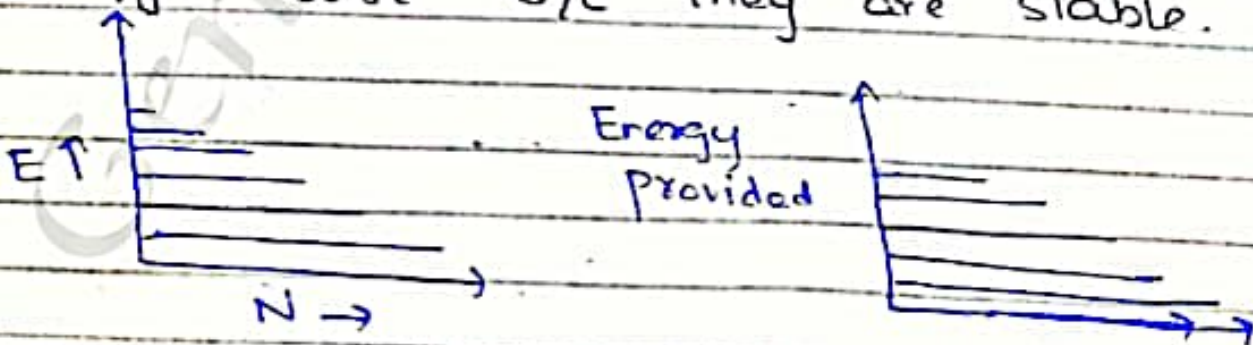 b/c they are stable.
Energy
E↑
provided
N →